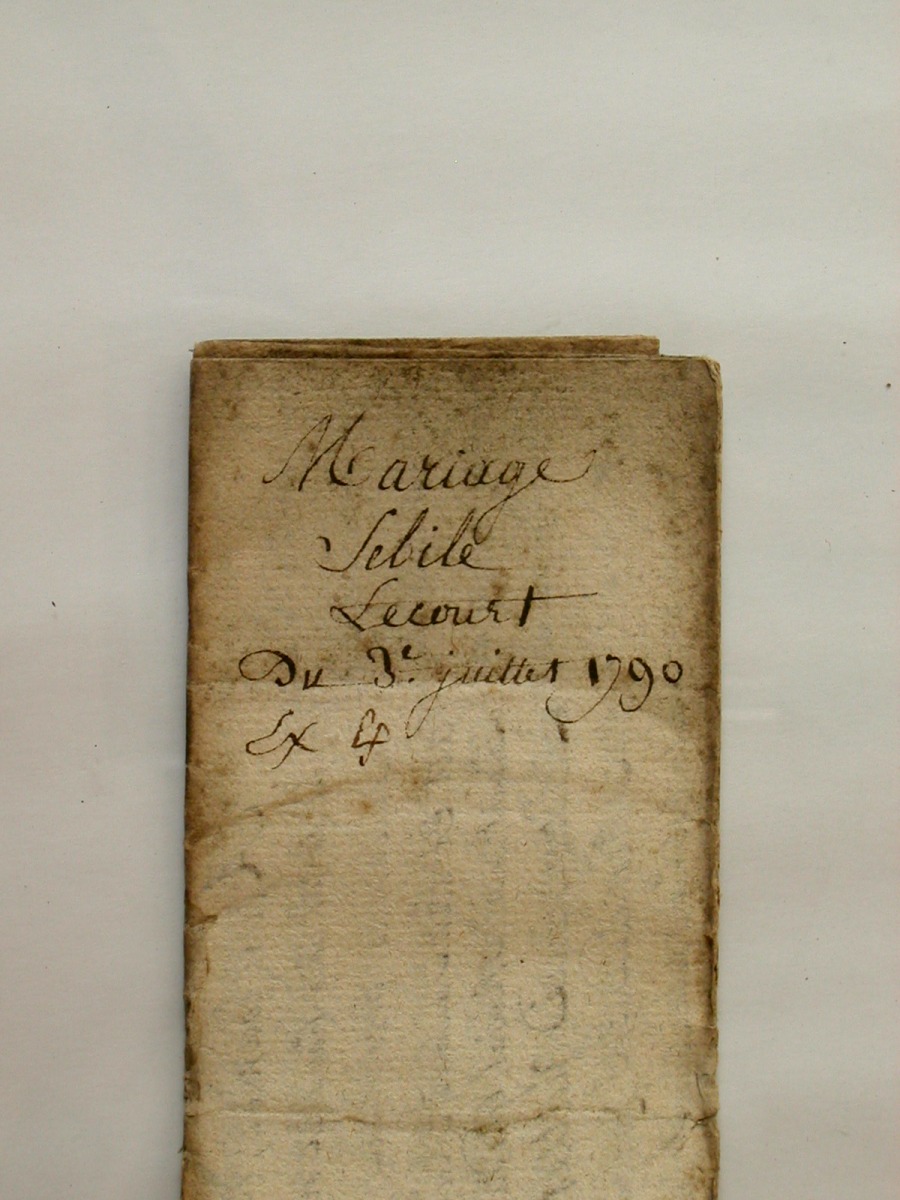 Mariage
Sebile
Lecourt
Du 3e. juillet 1790
Ex